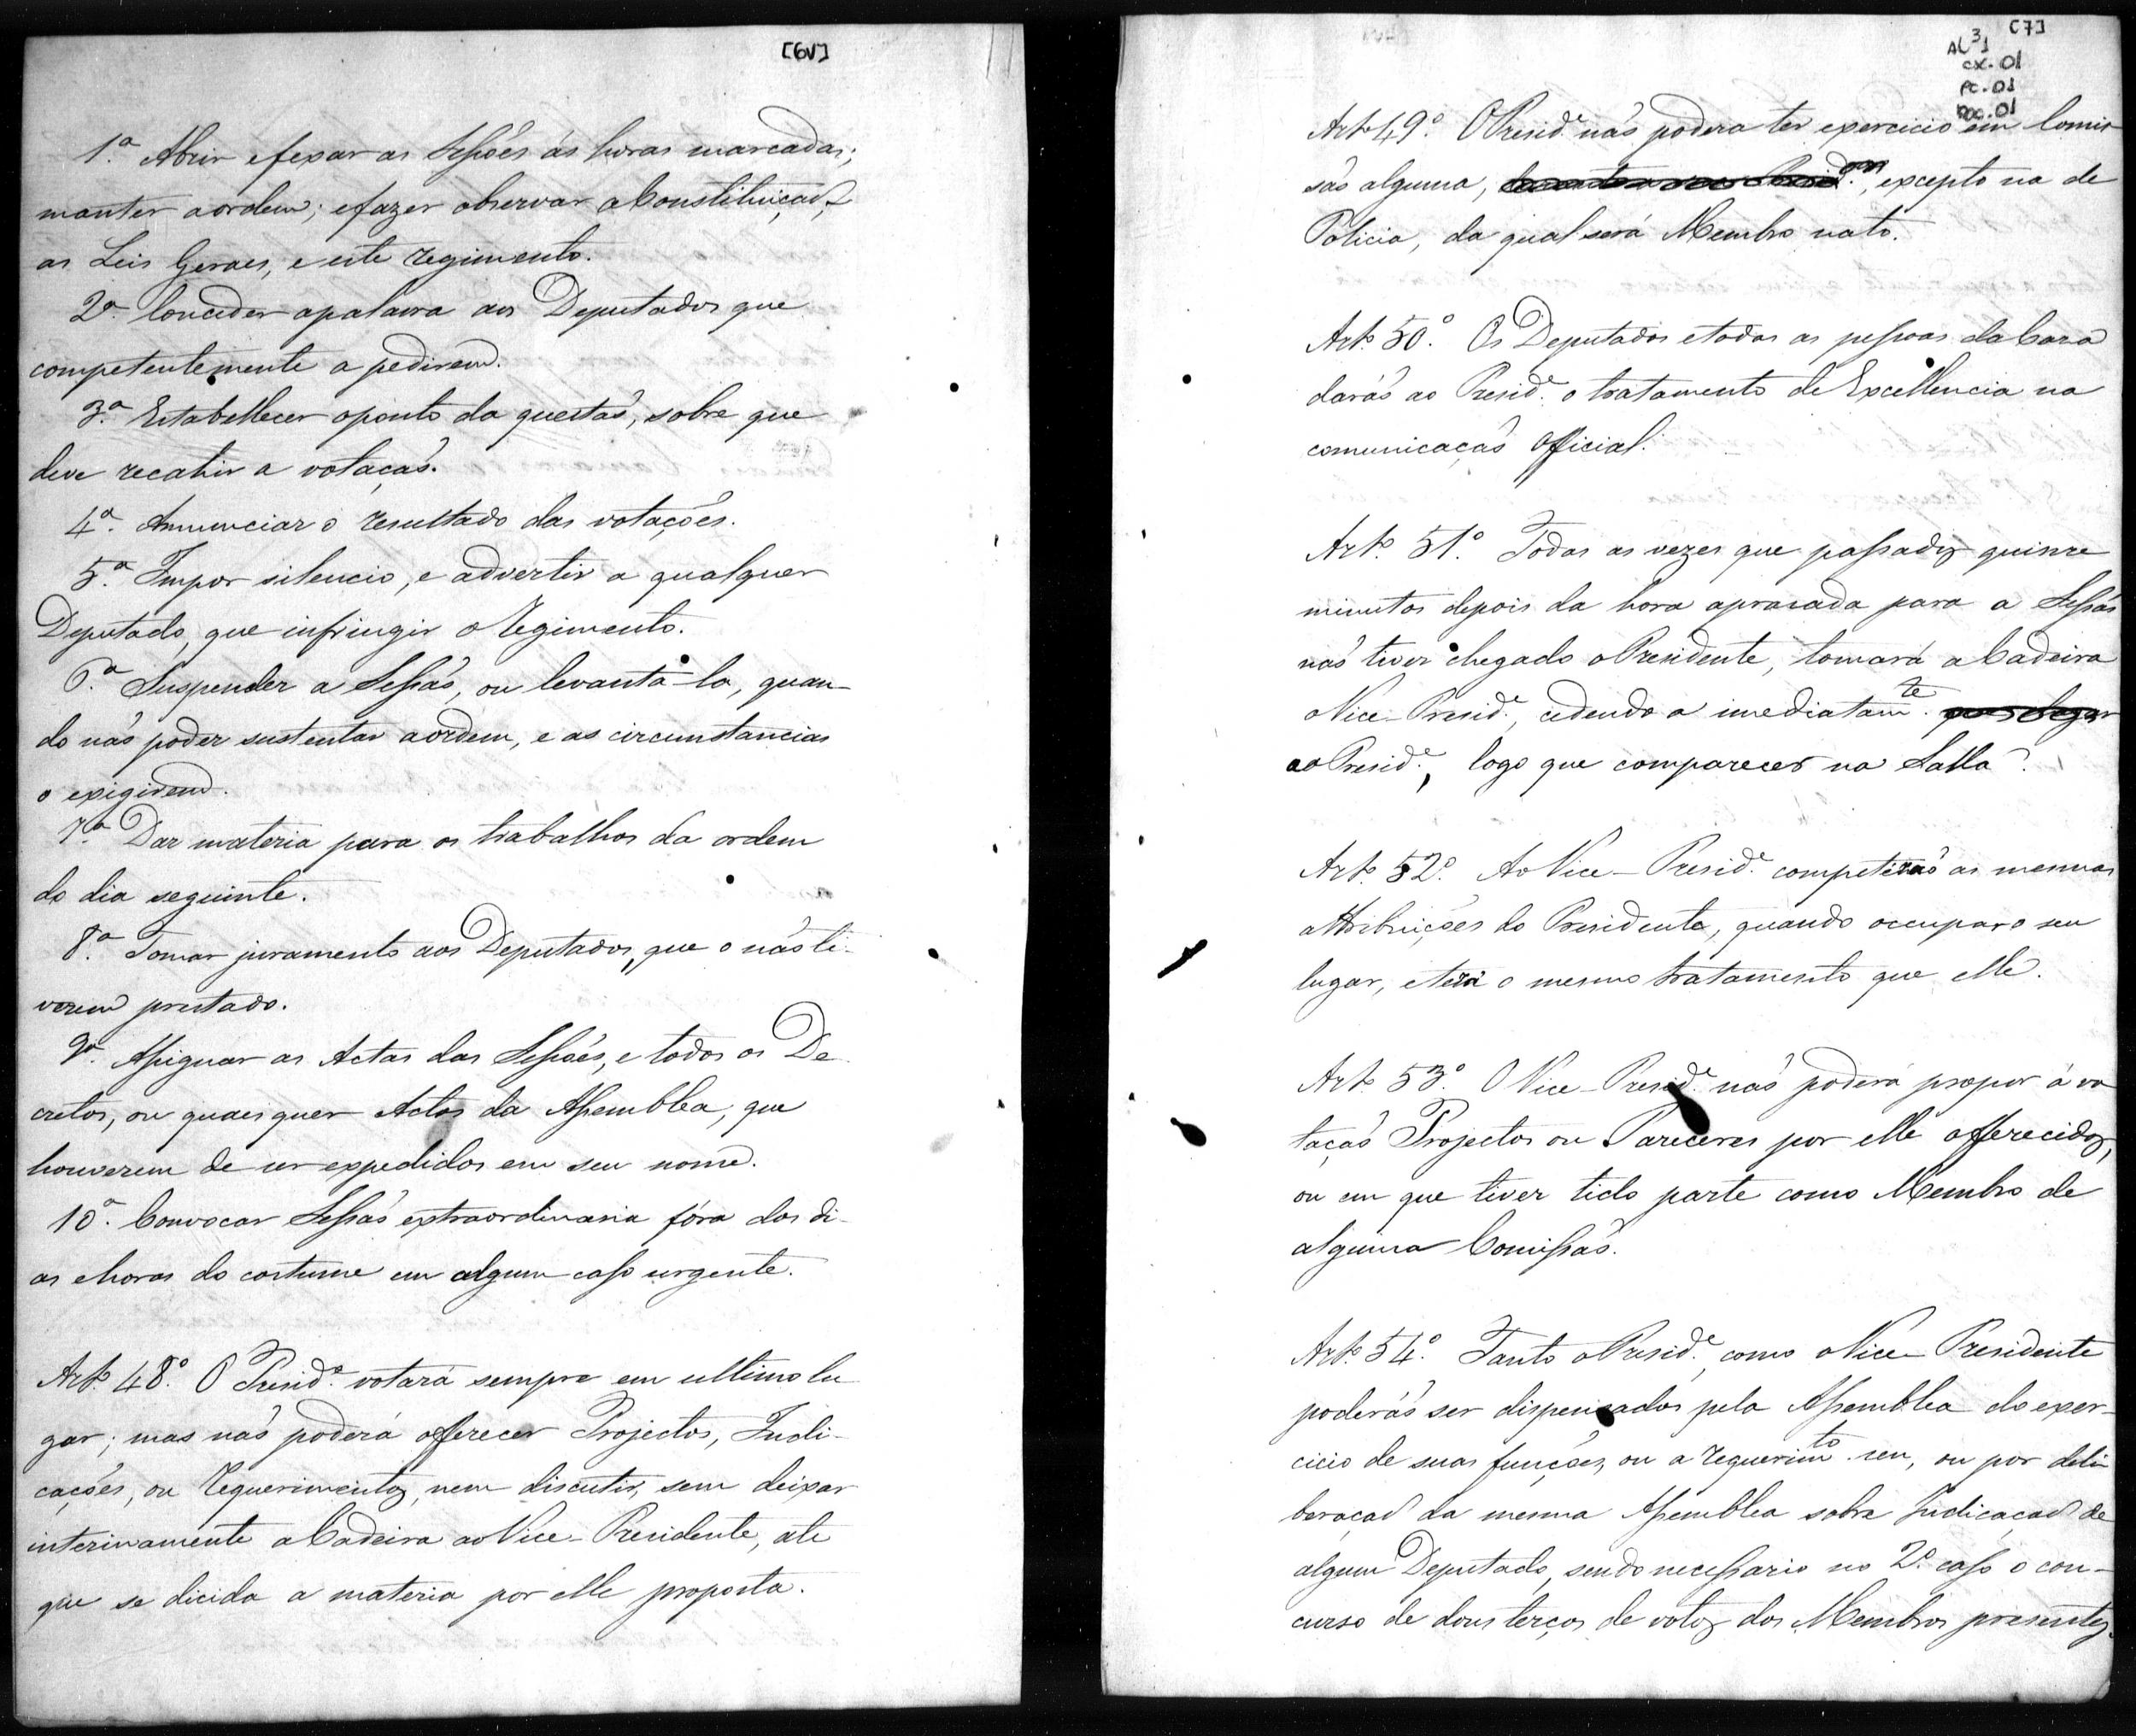 [6V]
1.ª Abrir e fexar as Seſsões ás horas marcadas;
manter a ordem; e fazer observar a Constituiçaõ,
as Leis Geraes, e este regimento.
2.ª Conceder a palavra aos Deputados que
competentemente a pedirem.
3.ª Estabellecer o ponto da questaõ, sobre que
deve recahir a votaçaõ.
4.ª Annunciar o resultado das votações.
5.ª Impor silencio, e advertir a qualquer
Deputado, que infringir o regimento.
6.ª Suspender a Seſsaõ, ou levanta-la, quan-
do naõ poder sustentar a ordem, e as circumstancias
o exigirem.
7.ª Dar materia para os trabalhos da ordem
do dia seguinte.
8.ª Tomar juramento aos Deputados, que o naõ ti-
verem prestado.
9.ª Aſsignar as Actas das Seſsões, e todos os De-
cretos, ou quaesquer Actos da Aſsemblea, que
houverem de ser expedidos em seu nome.
10.ª Convocar Seſsaõ extraordinaria fóra dos di-
as e horas do costume em algum caso urgente.
Art.º 48.º O Presid.e votará sempre em ultimo lu
gar; mas naõ poderá offerecer Projectos, Indi-
cações, ou requerimentos, nem discutir, sem deixar
interinamente a Cadeira ao Vice-Presidente, até
que se dicida a materia por elle proposta.
[7]
AL³1
cx. 01
pc. 01
doc. 01
Art.º 49.º O Presid.e naõ poderá ter exercicio em Comis
saõ alguma, excepto na de
Policia, da qual será Membro nato.
Art.º 50.º Os Deputados e todas as peſsoas da Caza
daráõ ao Presid.e o tratamento de Excellencia na
comunicaçaõ official.
Art.º 51.º Todas as vezes que paſsados quinze
minutos depois da hora aprasada para a Seſsaõ
naõ tiver chegado o Presidente, tomará a Cadeira
o Vice-Presid.e, cedendo a imediatam.te
ao Presid.e, logo que comparecer na Salla.
Art.º 52.º Ao Vice-Presid.e competiráõ as mesmas
attribuições do Presidente, quando occupar o seu
lugar, e terá o mesmo tratamento que elle.
Art.º 53.º O Vice-Presid.e naõ poderá propor á vo
taçaõ Projectos ou Pareceres por elle offerecidos,
ou em que tiver tido parte como Membro de
alguma Comiſsaõ.
Art.º 54.º Tanto o Presid.e, como o Vice-Presidente
poderáõ ser dispensados pela Aſsemblea do exer-
cicio de suas funções, ou a requerim.to seu, ou por deli
beraçaõ da mesma Aſsemblea sobre Indicaçaõ de
algum Deputado, sendo neceſsario no 2.º caso o con-
curso de dous terços de votos dos Membros presentes.